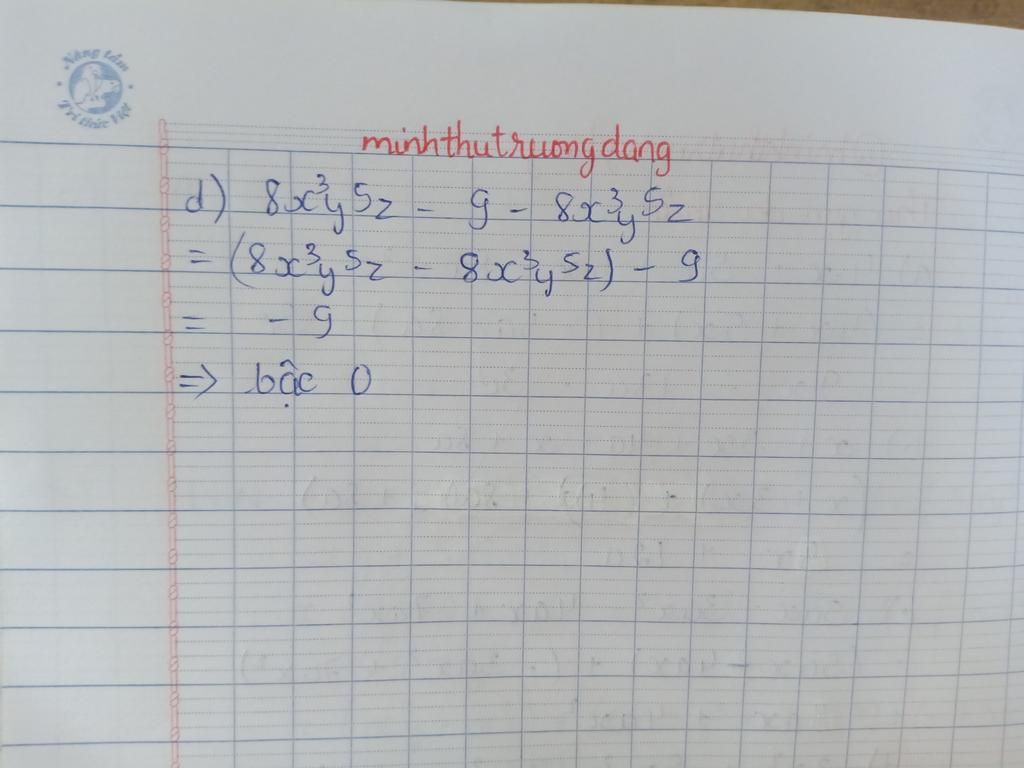 Nâng tầm
Trí thức Việt
minhthutruongdang
d) 8x³y⁵z - 9 - 8x³y⁵z
= (8x³y⁵z - 8x³y⁵z) - 9
= - 9
=> bậc 0